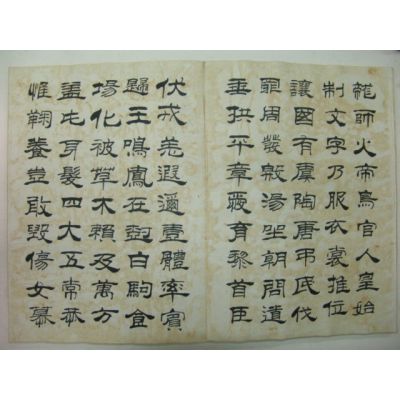 龍師火帝鳥官人皇始
制文字乃服衣裳推位
讓國有虞陶唐弔民伐
罪周發殷湯坐朝問道
垂拱平章愛育黎首臣
伏戎羌遐邇壹體率賓
歸王鳴鳳在樹白駒食
場化被草木賴及萬方
蓋此身髮四大五常恭
惟鞠養豈敢毀傷女慕